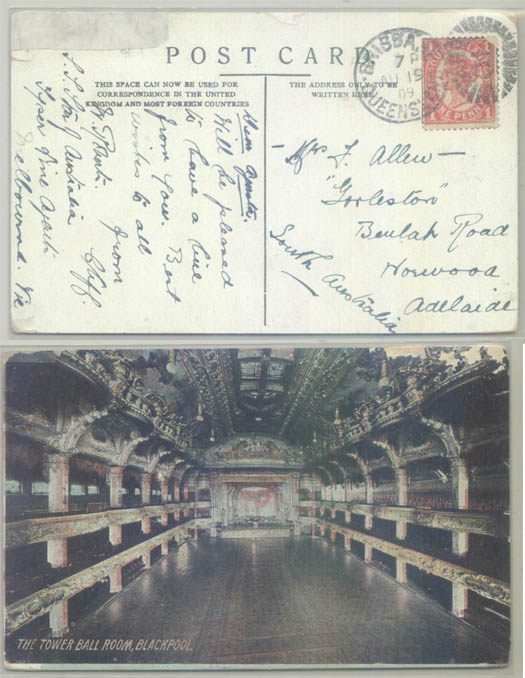 POST CARD
THIS SPACE CAN NOW BE USED FOR
CORRESPONDENCE IN THE UNITED
KINGDOM AND MOST FOREIGN COUNTRIES
THE ADDRESS ONLY TO BE
WRITTEN HERE
BRISBA
7 P
AU 19
09
QUEENS
ONE PENNY
Will be pleased
to have a line
from you. Best
wishes to all
from
Cliff
S.S. Star of Australia
Melbourne. Vic
Mrs J. Allen
"Gorleston"
Beulah Road
Norwood
Adelaide
South Australia
THE TOWER BALL ROOM, BLACKPOOL.